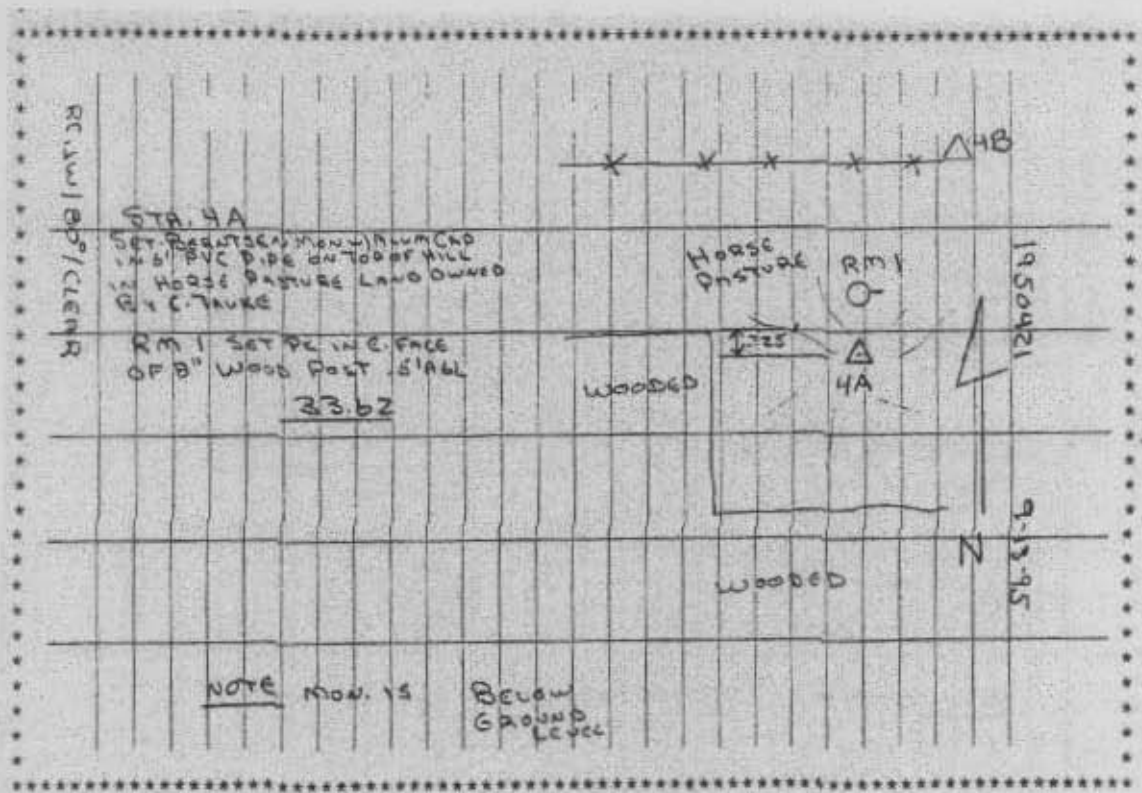 RC, JW / 80° / CLEAR
STA. 4A
SET BERNTSEN MON W/ ALUM CAP
IN 6" PVC PIPE ON TOP OF HILL
IN HORSE PASTURE LAND OWNED
BY C. TAUKE
RM 1 SET PK IN E. FACE
OF 8" WOOD POST .5' AGL
33.62
NOTE MON. IS BELOW
GROUND
LEVEL
4B
HORSE
PASTURE
RM 1
WOODED
4A
WOODED
N
1950421
9-13-95